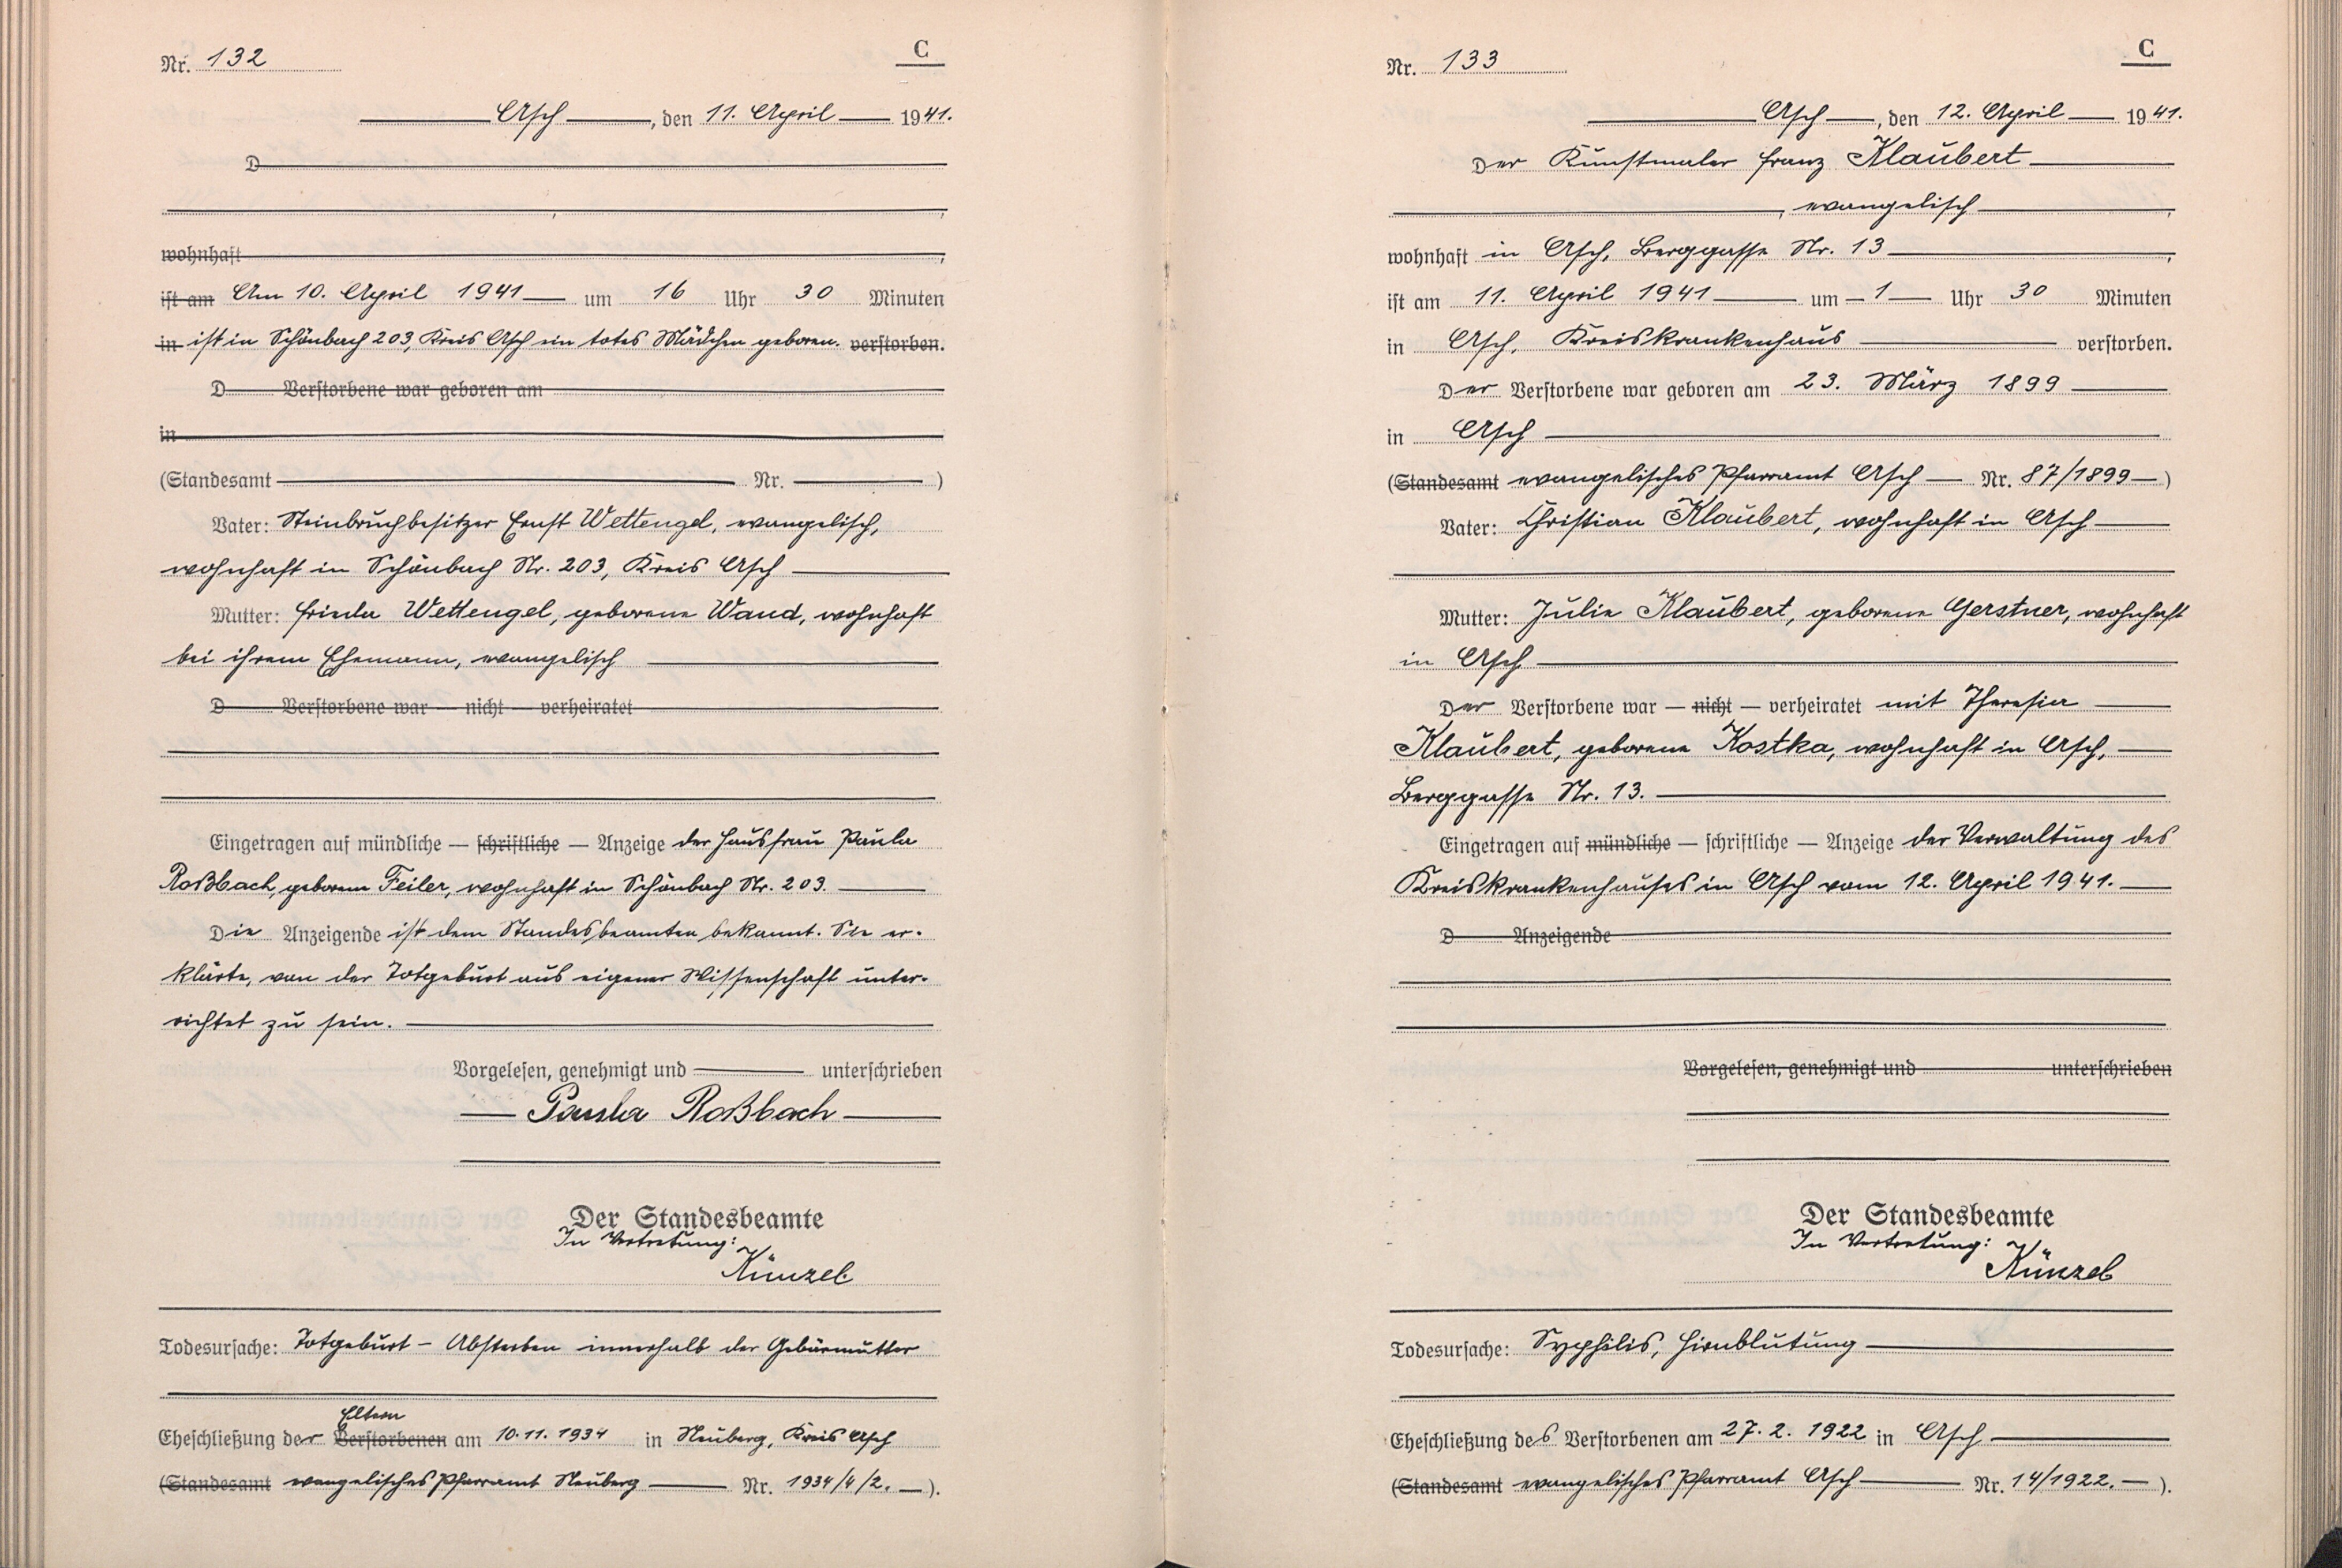 Nr. 132
C
Asch, den 11. April 1941.
D
wohnhaft
ist am Am 10. April 1941 um 16 Uhr 30 Minuten
in ist in Schönbach 203, Kreis Asch ein totes Mädchen geboren. verstorben.
D Verstorbene war geboren am
in
(Standesamt Nr. )
Vater: Steinbruchbesitzer Ernst Wettengel, evangelisch,
wohnhaft in Schönbach Nr. 203, Kreis Asch
Mutter: Frieda Wettengel, geborene Wand, wohnhaft
bei ihrem Ehemann, evangelisch
D Verstorbene war — nicht — verheiratet
Eingetragen auf mündliche — schriftliche — Anzeige der Hausfrau Paula
Roßbach, geborene Feiler, wohnhaft in Schönbach Nr. 203.
Die Anzeigende ist dem Standesbeamten bekannt. Sie er-
klärte, von der Totgeburt aus eigener Wissenschaft unter-
richtet zu sein.
Vorgelesen, genehmigt und unterschrieben
Paula Roßbach
Der Standesbeamte
In Vertretung:
Künzel
Todesursache: Totgeburt - Absterben innerhalb der Gebärmutter
Eltern
Eheschließung der Verstorbenen am 10.11.1934 in Neuberg, Kreis Asch
(Standesamt evangelisches Pfarramt Neuberg Nr. 1934/4/2. ).
Nr. 133
C
Asch, den 12. April 1941.
Der Kunstmaler Franz Klaubert
, evangelisch,
wohnhaft in Asch, Berggasse Nr. 13,
ist am 11. April 1941 um 1 Uhr 30 Minuten
in Asch, Kreiskrankenhaus verstorben.
Der Verstorbene war geboren am 23. März 1899
in Asch
(Standesamt evangelisches Pfarramt Asch Nr. 87/1899)
Vater: Christian Klaubert, wohnhaft in Asch
Mutter: Julie Klaubert, geborene Gerstner, wohnhaft
in Asch
Der Verstorbene war — nicht — verheiratet mit Theresia
Klaubert, geborene Kostka, wohnhaft in Asch,
Berggasse Nr. 13.
Eingetragen auf mündliche — schriftliche — Anzeige der Verwaltung des
Kreiskrankenhauses in Asch vom 12. April 1941.
D Anzeigende
Vorgelesen, genehmigt und unterschrieben
Der Standesbeamte
In Vertretung:
Künzel
Todesursache: Syphilis, Hirnblutung
Eheschließung des Verstorbenen am 27.2.1922 in Asch
(Standesamt evangelisches Pfarramt Asch Nr. 14/1922. ).